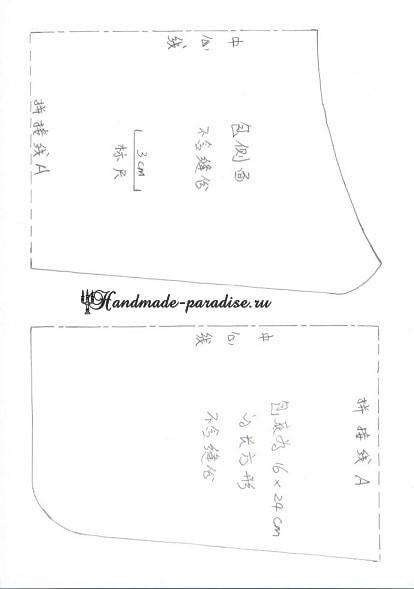 中心线
包侧面
不含缝份
3cm
标尺
拼接线A
Handmade-paradise.ru
中心线
拼接线A
包底为16×24cm
的长方形
不含缝份